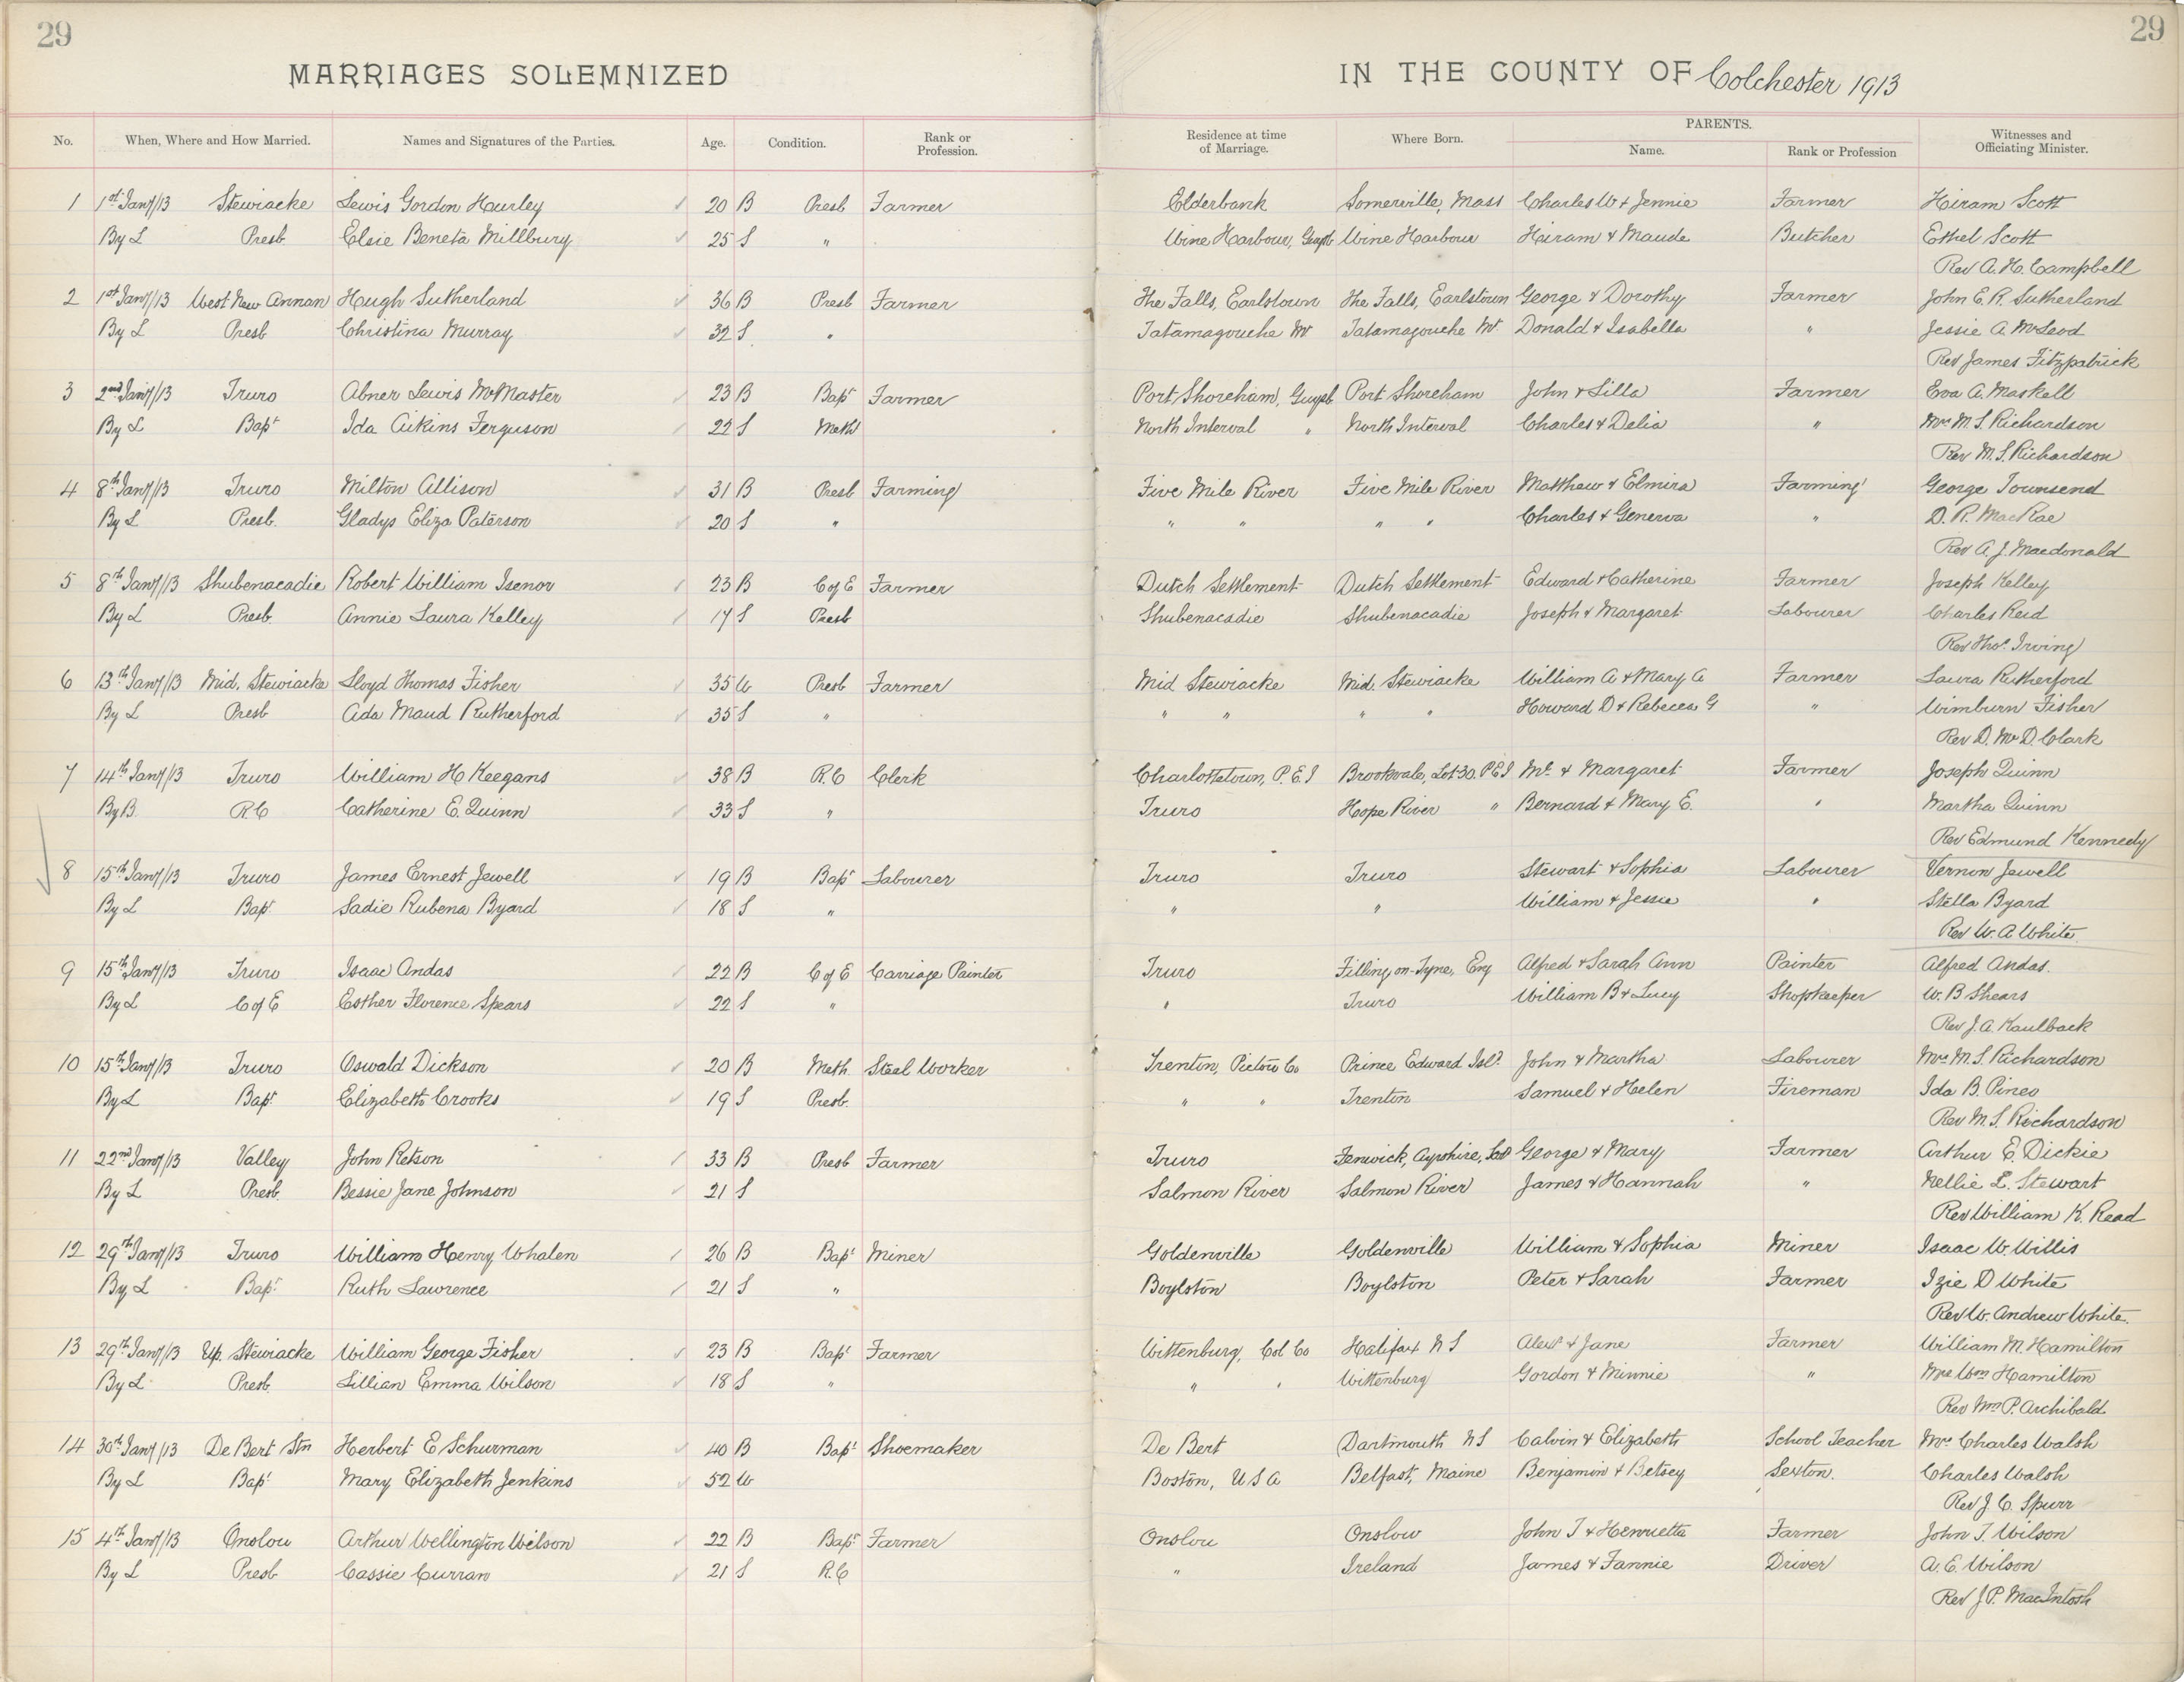 29 29
MARRIAGES SOLEMNIZED IN THE COUNTY OF Colchester 1913
No. When, Where and How Married. Names and Signatures of the Parties. Age. Condition. Rank or Profession. Residence at time of Marriage. Where Born. PARENTS. Name. Rank or Profession Witnesses and Officiating Minister.
1 1st Jany/13 Stewiacke Lewis Gordon Hurley 20 B Presb Farmer Elderbank Somerville, Mass Charles W & Jennie Farmer Hiram Scott
By L Presb Elsie Beneta Millbury 25 S " Wine Harbour, Guysb Wine Harbour Hiram & Maude Butcher Ethel Scott
Rev A. H. Campbell
2 1st Jany/13 West New Annan Hugh Sutherland 36 B Presb Farmer The Falls, Earlstown The Falls, Earlstown George & Dorothy Farmer John E. R. Sutherland
By L Presb Christina Murray 32 S " Tatamagouche Mt Tatamagouche Mt Donald & Isabella " Jessie A. McLeod
Rev James Fitzpatrick
3 2nd Jany/13 Truro Abner Lewis McMaster 23 B Bapt Farmer Port Shoreham, Guysb Port Shoreham John & Lilla Farmer Eva A. Maskell
By L Bapt Ida Aikins Ferguson 22 S Meth North Interval " North Interval Charles & Delia " Mrs M. S. Richardson
Rev M. S. Richardson
4 8th Jany/13 Truro Milton Allison 31 B Presb Farming Five Mile River Five Mile River Matthew & Elmira Farming George Townsend
By L Presb. Gladys Eliza Paterson 20 S " " " " " Charles & Generva " D. R. MacRae
Rev A. J. Macdonald
5 8th Jany/13 Shubenacadie Robert William Isenor 23 B C of E Farmer Dutch Settlement Dutch Settlement Edward & Catherine Farmer Joseph Kelley
By L Presb. Annie Laura Kelley 17 S Presb Shubenacadie Shubenacadie Joseph & Margaret Labourer Charles Reid
Rev Thos. Irving
6 13th Jany/13 Mid. Stewiacke Lloyd Thomas Fisher 35 W Presb Farmer Mid Stewiacke Mid. Stewiacke William A & Mary A Farmer Laura Rutherford
By L Presb Ada Maud Rutherford 35 S " " " " " Howard D & Rebecca G " Wimburn Fisher
Rev D. McD. Clark
7 14th Jany/13 Truro William H Keegans 38 B R.C Clerk Charlottetown, P.E.I Brookvale, Lot 30. P.E.I Mc. & Margaret Farmer Joseph Quinn
By B. R.C Catherine E. Quinn 33 S " Truro Hope River " Bernard & Mary E. " Martha Quinn
Rev Edmund Kennedy
8 15th Jany/13 Truro James Ernest Jewell 19 B Bapt Labourer Truro Truro Stewart & Sophia Labourer Vernon Jewell
By L Bapt Sadie Rubena Byard 18 S " " " William & Jessie " Stella Byard
Rev W. A White
9 15th Jany/13 Truro Isaac Andas 22 B C of E Carriage Painter Truro Filling-on-Tyne, Eng Alfred & Sarah Ann Painter Alfred Andas.
By L C of E Esther Florence Spears 22 S " " Truro William B & Lucy Shopkeeper W. B Shears
Rev J. A. Kaulback
10 15th Jany/13 Truro Oswald Dickson 20 B Meth. Steal Worker Trenton, Pictou Co Prince Edward Isld. John & Martha Labourer Mrs M. S. Richardson
By L Bapt Elizabeth Crooks 19 S Presb. " " Trenton Samuel & Helen Fireman Ida B. Pineo
Rev M. S. Richardson
11 22nd Jany/13 Valley John Retson 33 B Presb Farmer Truro Fenwick, Ayrshire, Scd George & Mary Farmer Arthur E. Dickie
By L Presb. Bessie Jane Johnson 21 S Salmon River Salmon River James & Hannah " Nellie L. Stewart
Rev William K. Read
12 29th Jany/13 Truro William Henry Whalen 26 B Bapt Miner Goldenville Goldenville William & Sophia Miner Isaac W. Willis
By L Bapt Ruth Lawrence 21 S " Boylston Boylston Peter & Sarah Farmer Izie D White
Rev W. Andrew White.
13 29th Jany/13 Up. Stewiacke William George Fisher 23 B Bapt Farmer Wittenburg, Col Co Halifax N S Alexr & Jane Farmer William M. Hamilton
By L Presb. Lillian Emma Wilson 18 S " " " Wittenburg Gordon & Minnie " Mrs Wm Hamilton
Rev Wm P. Archibald
14 30th Jany/13 De Bert Stn Herbert E Schurman 40 B Bapt Shoemaker De Bert Dartmouth N S Calvin & Elizabeth School Teacher Mrs Charles Walsh
By L Bapt Mary Elizabeth Jenkins 52 W Boston, U S A Belfast, Maine Benjamin & Betsey Sexton. Charles Walsh
Rev J. C. Spurr
15 4th Jany/13 Onslow Arthur Wellington Wilson 22 B Bapt Farmer Onslow Onslow John T & Henrietta Farmer John T. Wilson
By L Presb Cassie Curran 21 S R.C " Ireland James & Fannie Driver A. E. Wilson
Rev J. P. MacIntosh